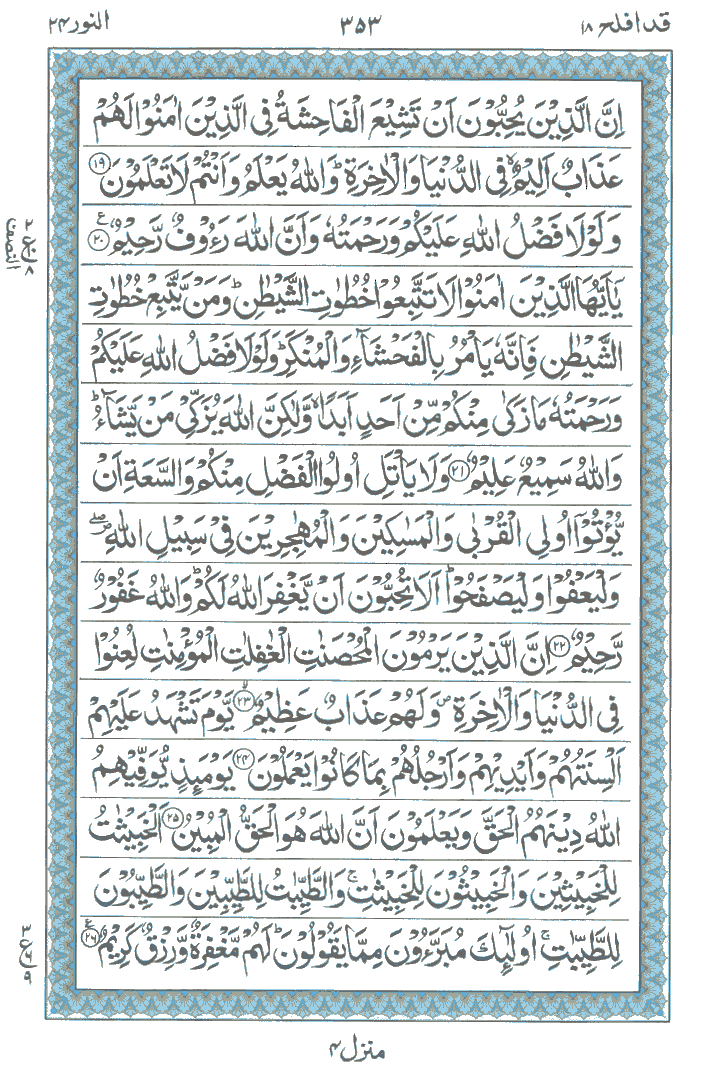 قد افلح ۱۸
۳۵۳
النور ۲۴
اِنَّ الَّذِیْنَ یُحِبُّوْنَ اَنْ تَشِیْعَ الْفَاحِشَةُ فِی الَّذِیْنَ اٰمَنُوْا لَهُمْ
عَذَابٌ اَلِیْمٌ ۙ فِی الدُّنْیَا وَالْاٰخِرَةِ ؕ وَاللّٰهُ یَعْلَمُ وَاَنْتُمْ لَا تَعْلَمُوْنَ ۱۹
وَلَوْلَا فَضْلُ اللّٰهِ عَلَیْكُمْ وَرَحْمَتُهٗ وَاَنَّ اللّٰهَ رَءُوْفٌ رَّحِیْمٌ ۲۰ ع
یٰۤاَیُّهَا الَّذِیْنَ اٰمَنُوْا لَا تَتَّبِعُوْا خُطُوٰتِ الشَّیْطٰنِ ؕ وَمَنْ یَّتَّبِعْ خُطُوٰتِ
الشَّیْطٰنِ فَاِنَّهٗ یَاْمُرُ بِالْفَحْشَآءِ وَالْمُنْكَرِ ؕ وَلَوْلَا فَضْلُ اللّٰهِ عَلَیْكُمْ
وَرَحْمَتُهٗ مَا زَكٰی مِنْكُمْ مِّنْ اَحَدٍ اَبَدًا ۙ وَّلٰكِنَّ اللّٰهَ یُزَكِّیْ مَنْ یَّشَآءُ ؕ
وَاللّٰهُ سَمِیْعٌ عَلِیْمٌ ۲۱ وَلَا یَاْتَلِ اُولُوا الْفَضْلِ مِنْكُمْ وَالسَّعَةِ اَنْ
یُّؤْتُوْۤا اُولِی الْقُرْبٰی وَالْمَسٰكِیْنَ وَالْمُهٰجِرِیْنَ فِیْ سَبِیْلِ اللّٰهِ ۖ
وَلْیَعْفُوْا وَلْیَصْفَحُوْا ؕ اَلَا تُحِبُّوْنَ اَنْ یَّغْفِرَ اللّٰهُ لَكُمْ ؕ وَاللّٰهُ غَفُوْرٌ
رَّحِیْمٌ ۲۲ اِنَّ الَّذِیْنَ یَرْمُوْنَ الْمُحْصَنٰتِ الْغٰفِلٰتِ الْمُؤْمِنٰتِ لُعِنُوْا
فِی الدُّنْیَا وَالْاٰخِرَةِ ۪ وَلَهُمْ عَذَابٌ عَظِیْمٌ ۲۳ یَّوْمَ تَشْهَدُ عَلَیْهِمْ
اَلْسِنَتُهُمْ وَاَیْدِیْهِمْ وَاَرْجُلُهُمْ بِمَا كَانُوْا یَعْمَلُوْنَ ۲۴ یَوْمَىِٕذٍ یُّوَفِّیْهِمُ
اللّٰهُ دِیْنَهُمُ الْحَقَّ وَیَعْلَمُوْنَ اَنَّ اللّٰهَ هُوَ الْحَقُّ الْمُبِیْنُ ۲۵ اَلْخَبِیْثٰتُ
لِلْخَبِیْثِیْنَ وَالْخَبِیْثُوْنَ لِلْخَبِیْثٰتِ ۚ وَالطَّیِّبٰتُ لِلطَّیِّبِیْنَ وَالطَّیِّبُوْنَ
لِلطَّیِّبٰتِ ۚ اُولٰٓىِٕكَ مُبَرَّءُوْنَ مِمَّا یَقُوْلُوْنَ ؕ لَهُمْ مَّغْفِرَةٌ وَّرِزْقٌ كَرِیْمٌ ۲۶ ع
النصف
۲ ع ۸
۳ ع ۶ ۹
منزل ۴